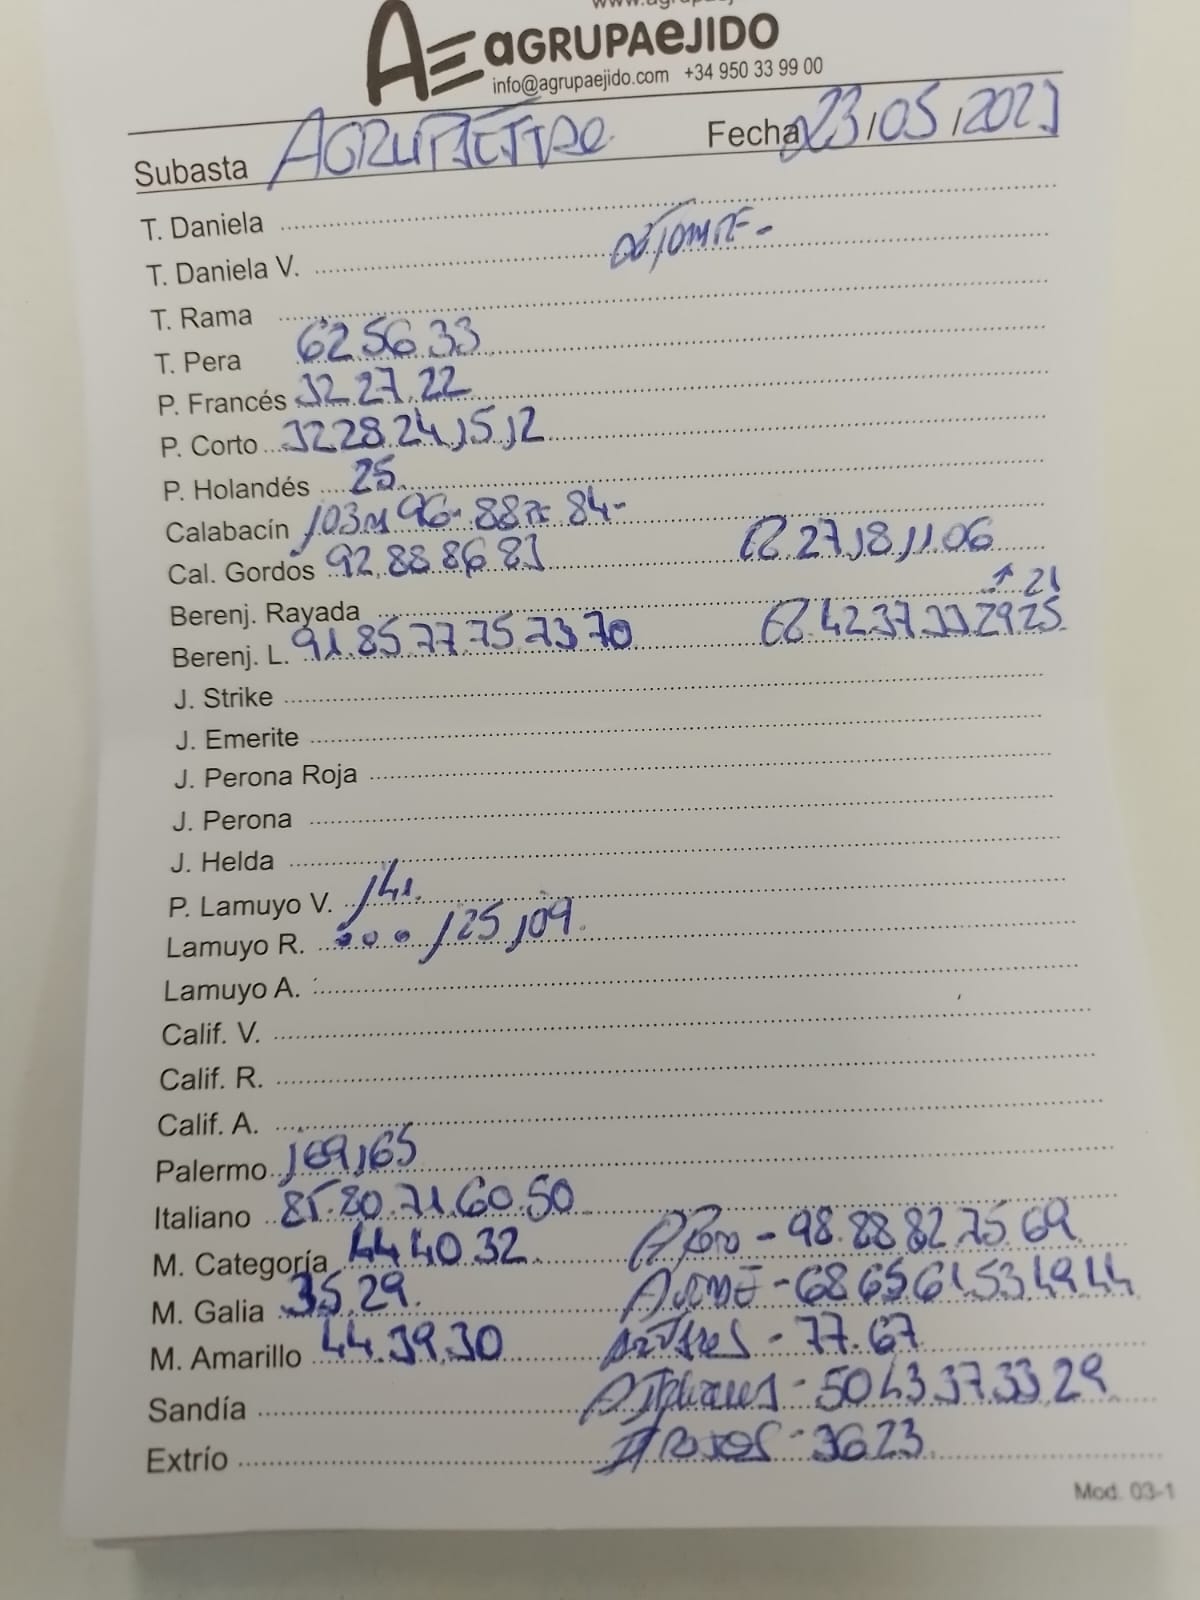 AGRUPAEJIDO
info@agrupaejido.com +34 950 33 99 00
Subasta AGRUPAEJIDO Fecha 23/05/2023
T. Daniela
T. Daniela V.
T. Rama
T. Pera 62.56.33
P. Francés 32.27.22
P. Corto 32.28.24,15,12
P. Holandés 25
Calabacín 103 96- 88 84-
Cal. Gordos 92.88.86.83 27,18,11.06
Berenj. Rayada 21
Berenj. L. 91.85.77.75.73.70 42.37.33.29.25
J. Strike
J. Emerite
J. Perona Roja
J. Perona
J. Helda
P. Lamuyo V. 141.
Lamuyo R. 125,109.
Lamuyo A.
Calif. V.
Calif. R.
Calif. A.
Palermo 169,165
Italiano 85.80.71.60.50
M. Categoría 44 40.32 - 98.88.82.75.69
M. Galia 35.29. - 68.65.61.53.49.44
M. Amarillo 44.39.30 - 77.67
Sandía - 50.43.37.33.29
Extrío - 36.23
Mod. 03-1